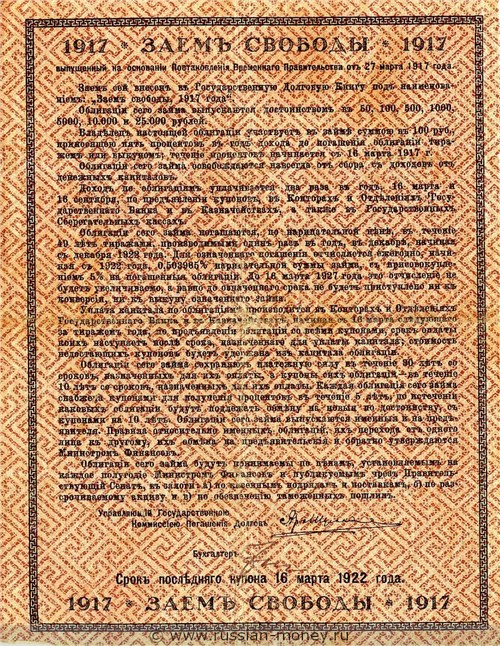 1917 * ЗАЕМЪ СВОБОДЫ * 1917
выпущенный на основаніи Постановленія Временнаго Правительства отъ 27 марта 1917 года.
Заемъ сей внесенъ въ Государственную Долговую Книгу подъ наименова-
ніемъ: „Заемъ свободы, 1917 года“.
Облигаціи сего займа выпускаются достоинствомъ въ 50, 100, 500, 1000,
5000, 10.000 и 25.000 рублей.
Владѣлецъ настоящей облигаціи участвуетъ въ займѣ суммою въ 100 руб.,
приносящею пять процентовъ въ годъ дохода до погашенія облигаціи тира-
жемъ или выкупомъ; теченіе процентовъ начинается съ 16 марта 1917 г.
Облигаціи сего займа освобождаются навсегда отъ сбора съ доходовъ отъ
денежныхъ капиталовъ.
Доходъ по облигаціямъ уплачивается два раза въ годъ, 16 марта и
16 сентября, по предъявленіи купоновъ, въ Конторахъ и Отдѣленіяхъ Госу-
дарственнаго Банка и въ Казначействахъ, а также въ Государственныхъ
Сберегательныхъ кассахъ.
Облигаціи сего займа погашаются, по нарицательной цѣнѣ, въ теченіе
49 лѣтъ тиражами, производимыми одинъ разъ въ годъ, въ декабрѣ, начиная
съ декабря 1922 года. Для означеннаго погашенія отчисляется ежегодно, начи-
ная съ 1922 года, 0,503965% нарицательной суммы займа, съ присовокупле-
ніемъ 5% на погашенныя облигаціи. До 16 марта 1927 года это отчисленіе не
будетъ увеличиваемо, а равно до означеннаго срока не будетъ приступлено ни къ
конверсіи, ни къ выкупу означеннаго займа.
Уплата капитала по облигаціямъ производится въ Конторахъ и Отдѣленіяхъ
Государственнаго Банка и въ Казначействахъ, начиная съ 16 марта слѣдующаго
за тиражемъ года, по предъявленіи облигаціи со всѣми купонами, срокъ оплаты
коихъ наступаетъ послѣ срока, назначеннаго для уплаты капитала; стоимость
недостающихъ купоновъ будетъ удержана изъ капитала облигаціи.
Облигаціи сего займа сохраняютъ платежную силу въ теченіе 30 лѣтъ со
сроковъ, назначенныхъ для ихъ выплаты, а купоны сихъ облигацій—въ теченіе
10 лѣтъ со сроковъ, назначенныхъ для ихъ оплаты. Каждая облигація сего займа
снабжена купонами для полученія процентовъ въ теченіе 5 лѣтъ, по истеченіи
каковыхъ облигаціи будутъ подлежать обмѣну на новыя по достоинству, съ
купонами на 10 лѣтъ. Облигаціи сего займа выпускаются именныя и на предъ-
явителя. Правила относительно именныхъ облигацій, ихъ перехода отъ одного
лица къ другому, ихъ обмѣна на предъявительскія и обратно утверждаются
Министромъ Финансовъ.
Облигаціи сего займа будутъ принимаемы по цѣнамъ, установляемымъ на
каждое полугодіе Министромъ Финансовъ и публикуемымъ чрезъ Правитель-
ствующій Сенатъ, въ залоги: а) по казеннымъ подрядамъ и поставкамъ, б) по раз-
срочиваемому акцизу и в) по обезпеченію таможенныхъ пошлинъ.
Управляющій Государственной
Коммиссіею Погашенія Долговъ
Бухгалтеръ
Срокъ послѣдняго купона 16 марта 1922 года.
1917 * ЗАЕМЪ СВОБОДЫ * 1917
© www.russian-money.ru